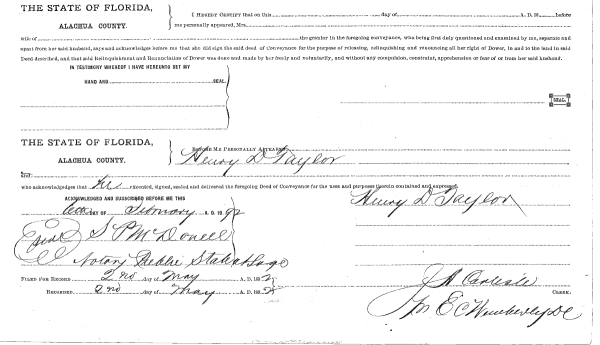 THE STATE OF FLORIDA,
ALACHUA COUNTY.
I HEREBY CERTIFY that on this day of A. D. 18 before
me personally appeared, Mrs.
wife of the grantor in the foregoing conveyance, who being first duly questioned and examined by me, separate and
apart from her said husband, says and acknowledges before me that she did sign the said deed of Conveyance for the purpose of releasing, relinquishing and renouncing all her right of Dower, in and to the land in said
Deed described, and that said Relinquishment and Renunciation of Dower was done and made by her freely and voluntarily, and without any compulsion, constraint, apprehension or fear of or from her said husband.
IN TESTIMONY WHEREOF I HAVE HEREUNTO SET MY
HAND AND SEAL.
SEAL.
THE STATE OF FLORIDA,
ALACHUA COUNTY.
BEFORE ME PERSONALLY APPEARED
Henry D Taylor
who acknowledges that he executed, signed, sealed and delivered the foregoing Deed of Conveyance for the uses and purposes therein contained and expressed.
ACKNOWLEDGED AND SUBSCRIBED BEFORE ME THIS
DAY OF February A. D. 1892
Henry D Taylor
Seal S P McDowell
Notary Public State at Large
FILED FOR RECORD 2nd day of May A. D. 189
J A Carlisle
RECORDED 2nd day of May A. D. 189 CLERK.
E C Wimberly DC